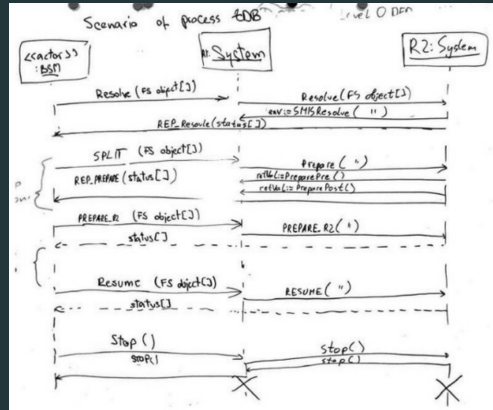 Scenario of process EDB
Level 0 DFD
<<actor>>
: BSM
R1: System
R2: System
Resolve (FS object[])
Resolve (FS object[])
env:=SMISResolve ( " )
REP_Resolve(status[])
SPLIT (FS object[])
Prepare ( " )
REP_PREPARE (status[])
retVal:=PreparePre()
retVal:=PreparePost()
PREPARE_R2 (FS object[])
PREPARE_R2( " )
status[]
Resume (FS object[])
RESUME( " )
status[]
Stop ()
Stop()
stop()
stop()